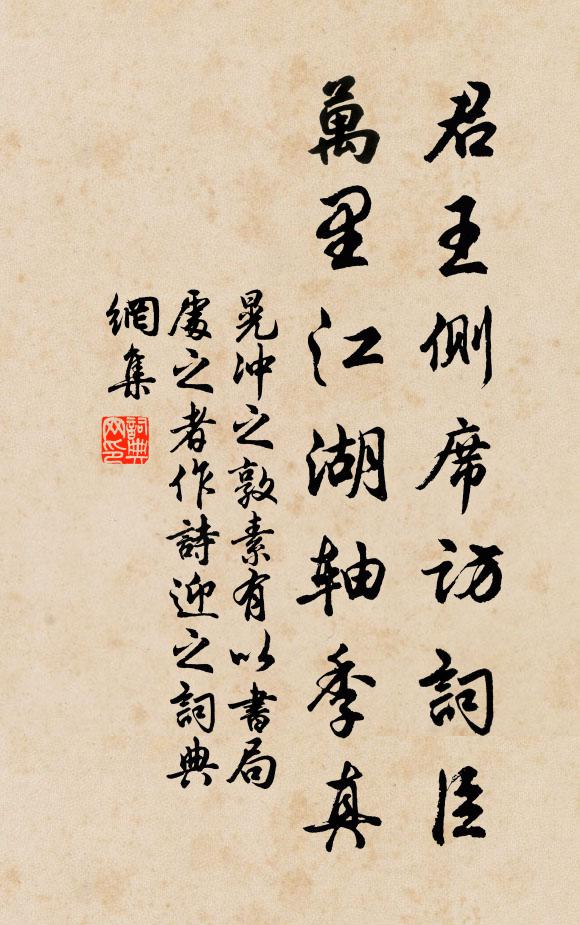 君王側席訪詞臣
萬里江湖軸季真
晃沖之敦素有以書局
處之者作詩迎之詞典
網集
詞典
网印